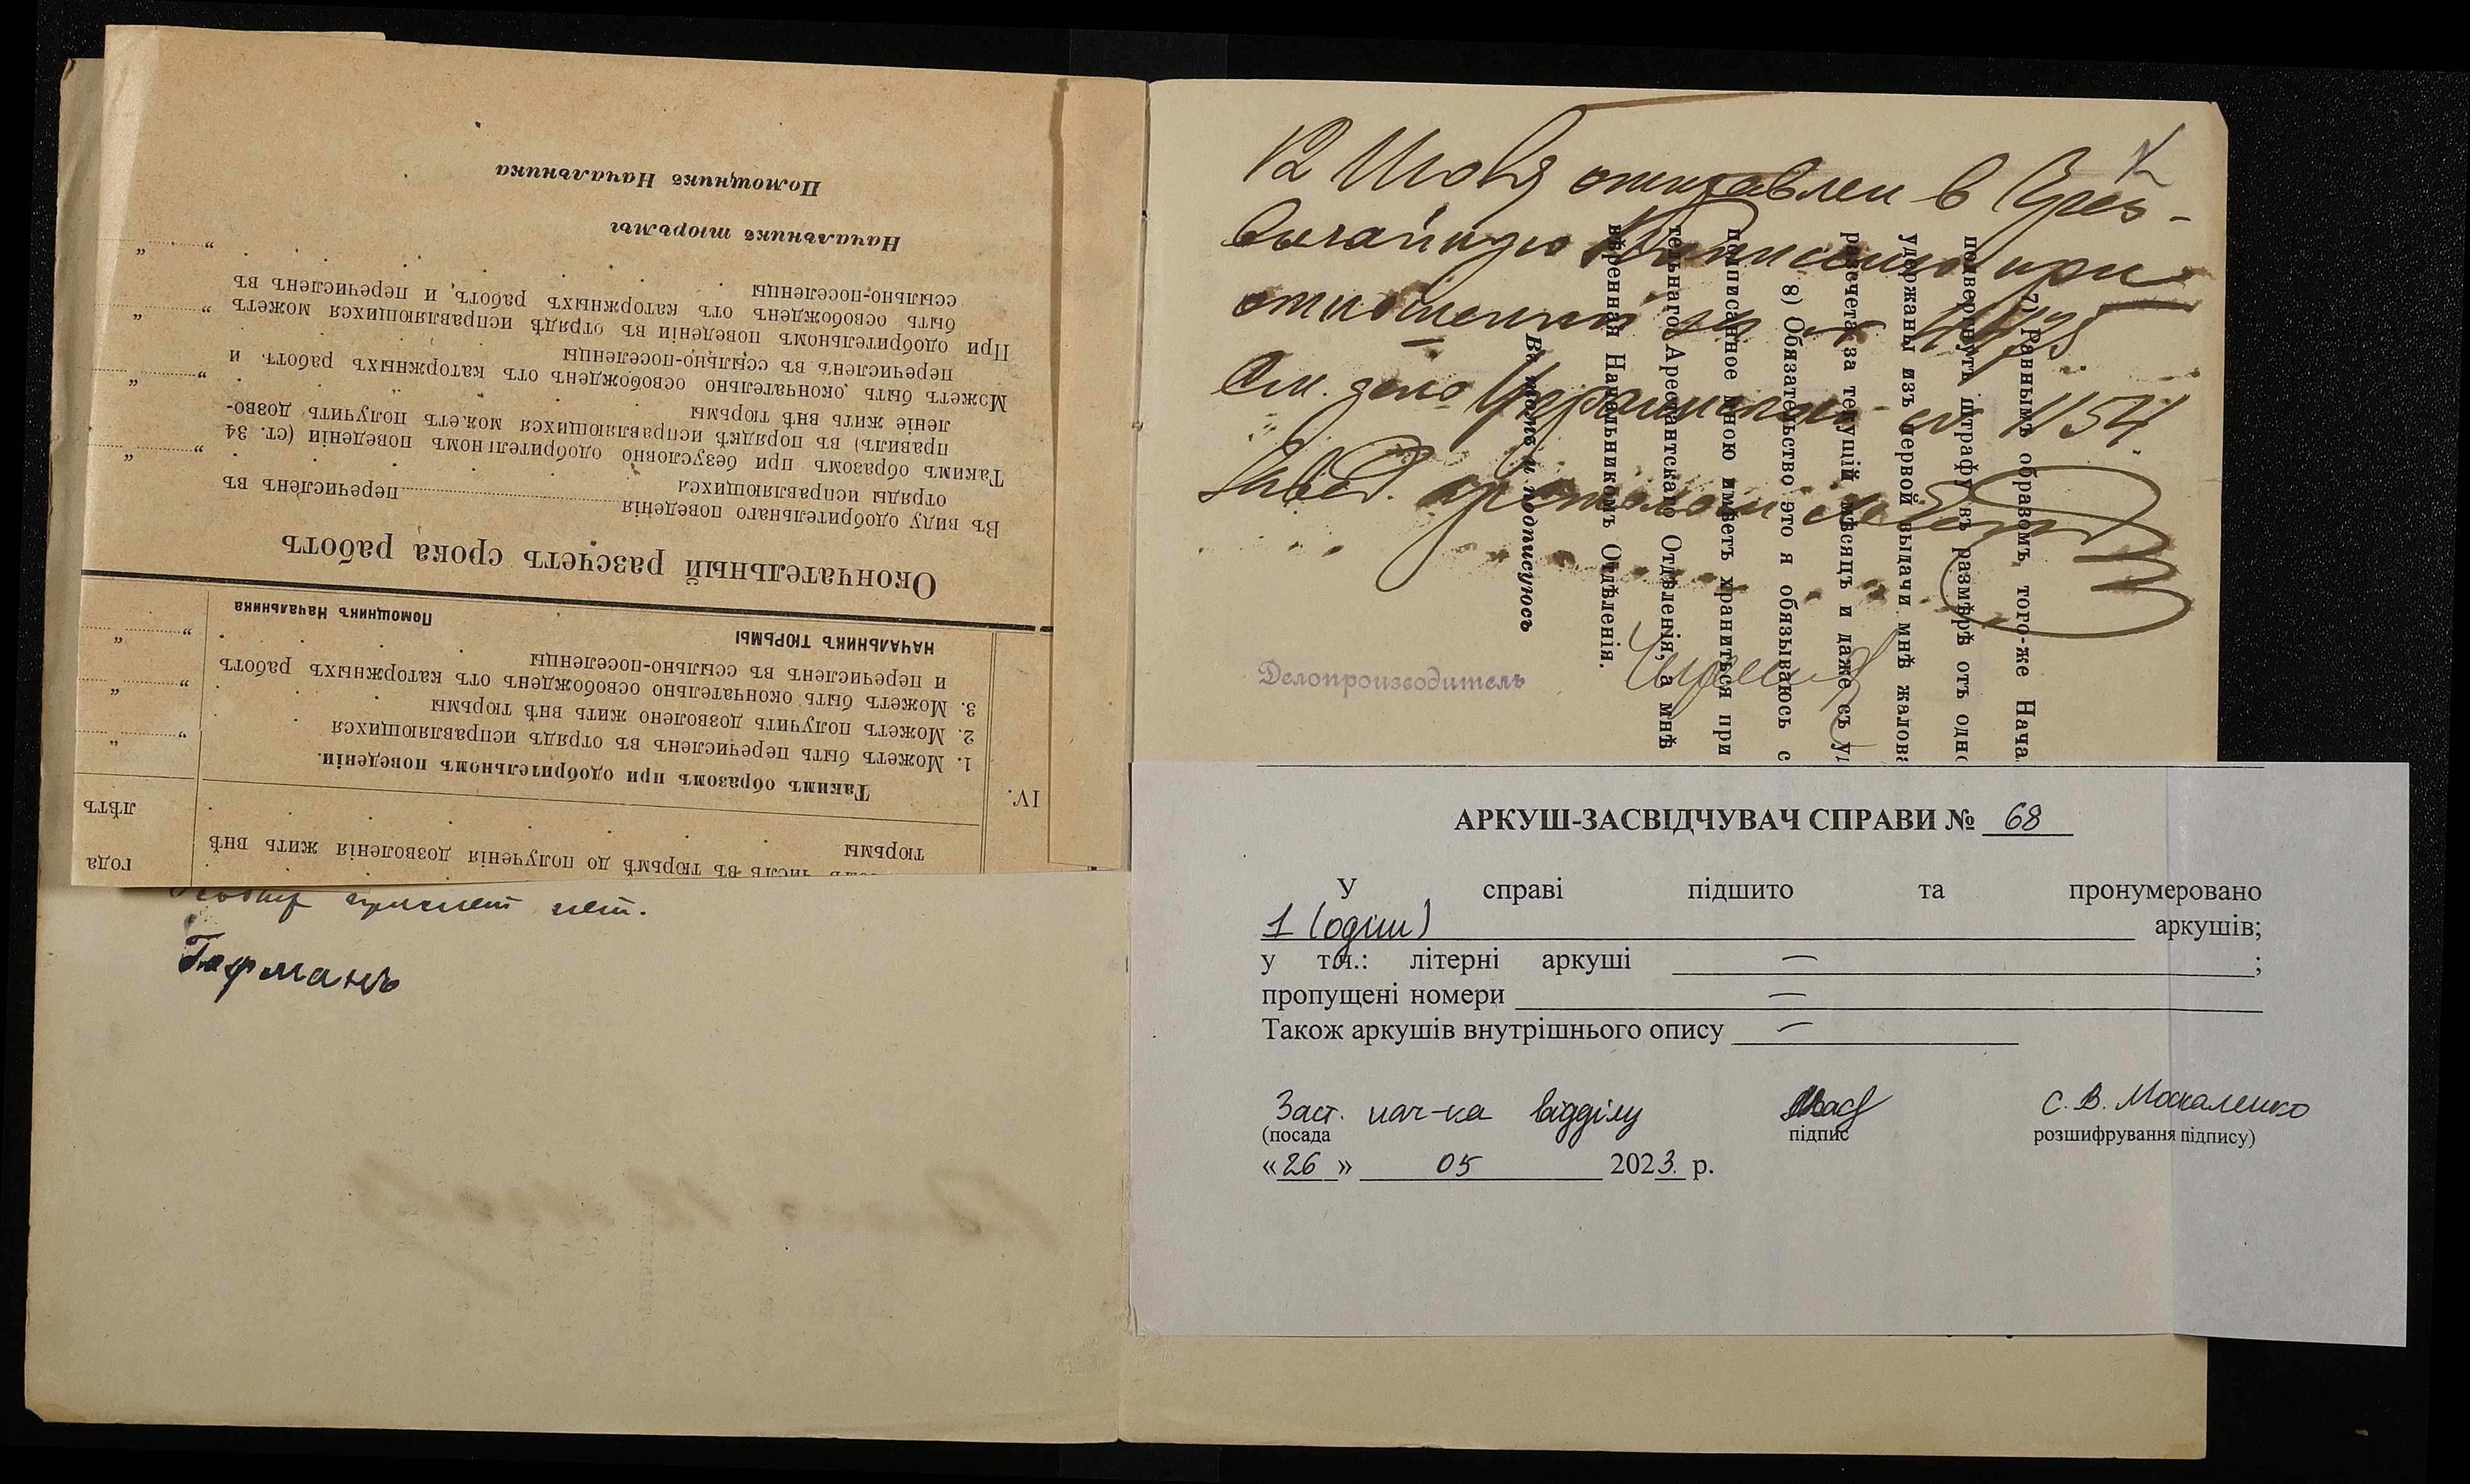 Помощникъ Начальника
Начальникъ тюрьмы
ссыльно-поселенцы
быть освобожденъ отъ каторжныхъ работъ, и перечисленъ въ
При одобрительномъ поведеніи въ отрядѣ исправляющихся можетъ
перечисленъ въ ссыльно-поселенцы
Можетъ быть окончательно освобожденъ отъ каторжныхъ работъ и
леніе жить внѣ тюрьмы
правилъ) въ порядкѣ исправляющихся можетъ получить дозво-
Такимъ образомъ при безусловно одобрительномъ поведеніи (ст. 34
отряды исправляющихся перечисленъ въ
Въ виду одобрительнаго поведенія
Окончательный разсчетъ срока работъ
Помощникъ Начальника
НАЧАЛЬНИКЪ ТЮРЬМЫ
и перечисленъ въ ссыльно-поселенцы
3. Можетъ быть окончательно освобожденъ отъ каторжныхъ работъ
2. Можетъ получить дозволено жить внѣ тюрьмы
1. Можетъ быть перечисленъ въ отрядъ исправляющихся
Такимъ образомъ при одобрительномъ поведеніи.
IV.
лѣтъ
тюрьмы
числѣ въ тюрьмѣ до полученія дозволенія жить внѣ
года
нет.
Гофманъ
12 Июня отправлен в Чрез-
вычайную Комиссию при
отношении за № 4475
См. дело № 1154
Завед.
Делопроизводитель
7) Равнымъ образомъ, того-же Нача
подвергнуть штрафу въ размѣрѣ отъ одно
удержаны изъ первой выдачи мнѣ жалова
разсчета за текущій мѣсяцъ и даже съ у
8) Обязательство это я обязываюсь с
подписанное мною имѣетъ храниться при
тельнаго Арестантскаго Отдѣленія, а мнѣ
вѣренная Начальникомъ Отдѣленія.
Въ томъ и подписуюсь
АРКУШ-ЗАСВІДЧУВАЧ СПРАВИ № 68
У справі підшито та пронумеровано
1 (один) аркушів;
у т.ч.: літерні аркуші — ;
пропущені номери —
Також аркушів внутрішнього опису —
Заст. нач-ка відділу С. В. Москаленко
(посада підпис розшифрування підпису)
«26» 05 2023 р.